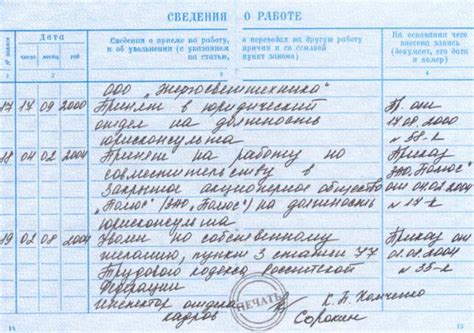 СВЕДЕНИЯ О РАБОТЕ
№ записи
Дата
Сведения о приеме на работу, о переводах на другую работу
и об увольнении (с указанием причин и со ссылкой
на статью, пункт закона)
На основании чего
внесена запись
(документ, его дата
и номер)
число месяц год
1 2 3 4
ООО „Энергосветтехника"
17 17 09 2000 Принят в юридический Пр. от
отдел на должность 17.08.2000
юрисконсульта № 58-к
18 04 02 2004 Принят на работу по Приказ
совместительству в ЗАО „Полюс"
Закрытое акционерное общество от 04.02.2004
„Полюс" (ЗАО „Полюс") на должность № 17-к
юрисконсульта
19 02 08 2004 Уволен по собственному Приказ от
желанию, пункт 3 статьи 77 02.08.2004
Трудового кодекса Российской № 35-к
Федерации
Инспектор отдела
кадров Сорокин
ПЕЧАТЬ
14 15